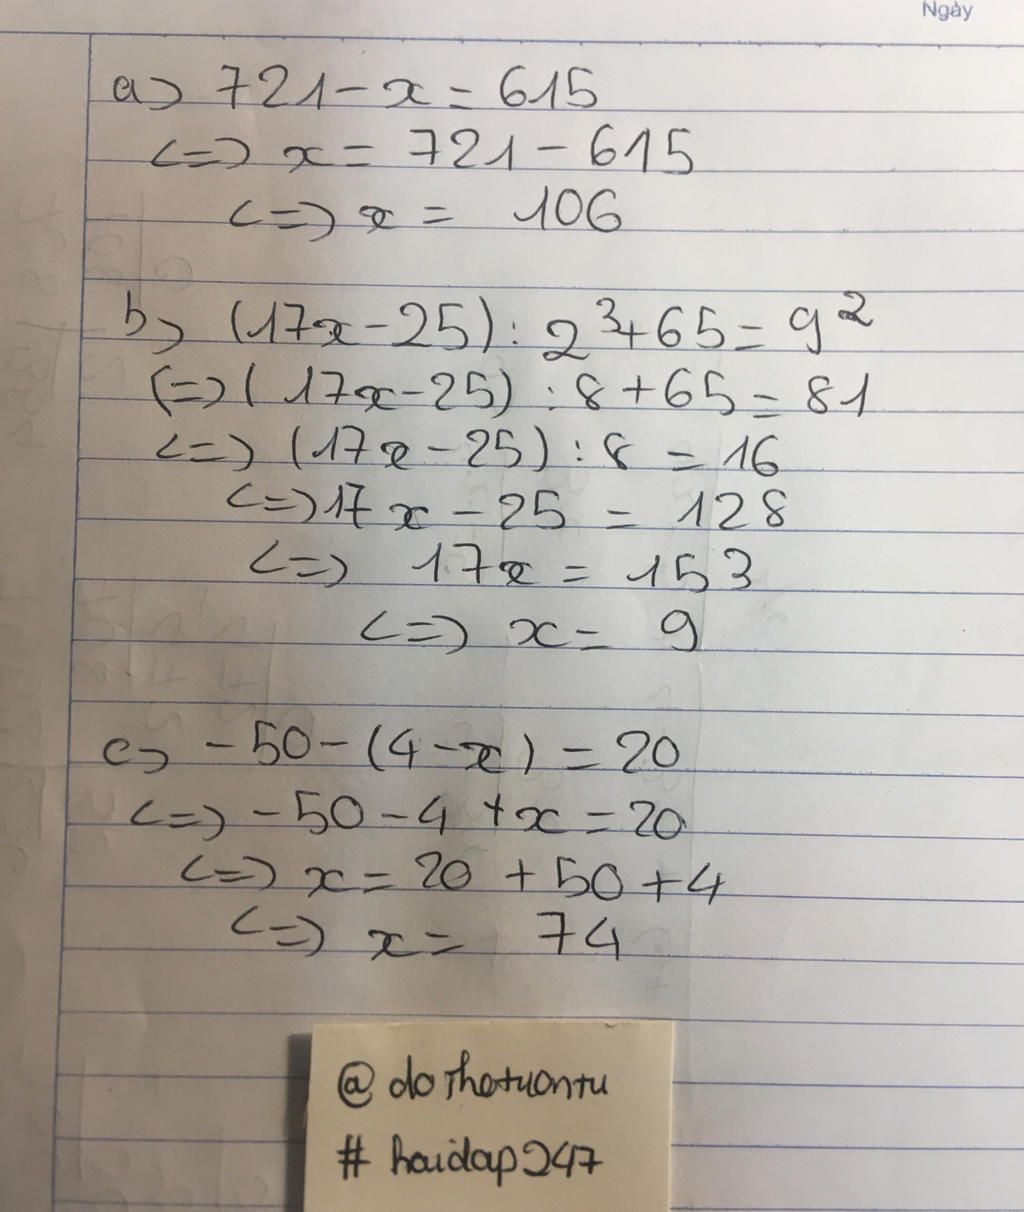 Ngày
a) 721 - x = 615
<=> x = 721 - 615
<=> x = 106
b) (17x - 25) : 2³ + 65 = 9²
<=> (17x - 25) : 8 + 65 = 81
<=> (17x - 25) : 8 = 16
<=> 17x - 25 = 128
<=> 17x = 153
<=> x = 9
c) - 50 - (4 - x) = 20
<=> - 50 - 4 + x = 20
<=> x = 20 + 50 + 4
<=> x = 74
@dothetuontu
# hoidap247